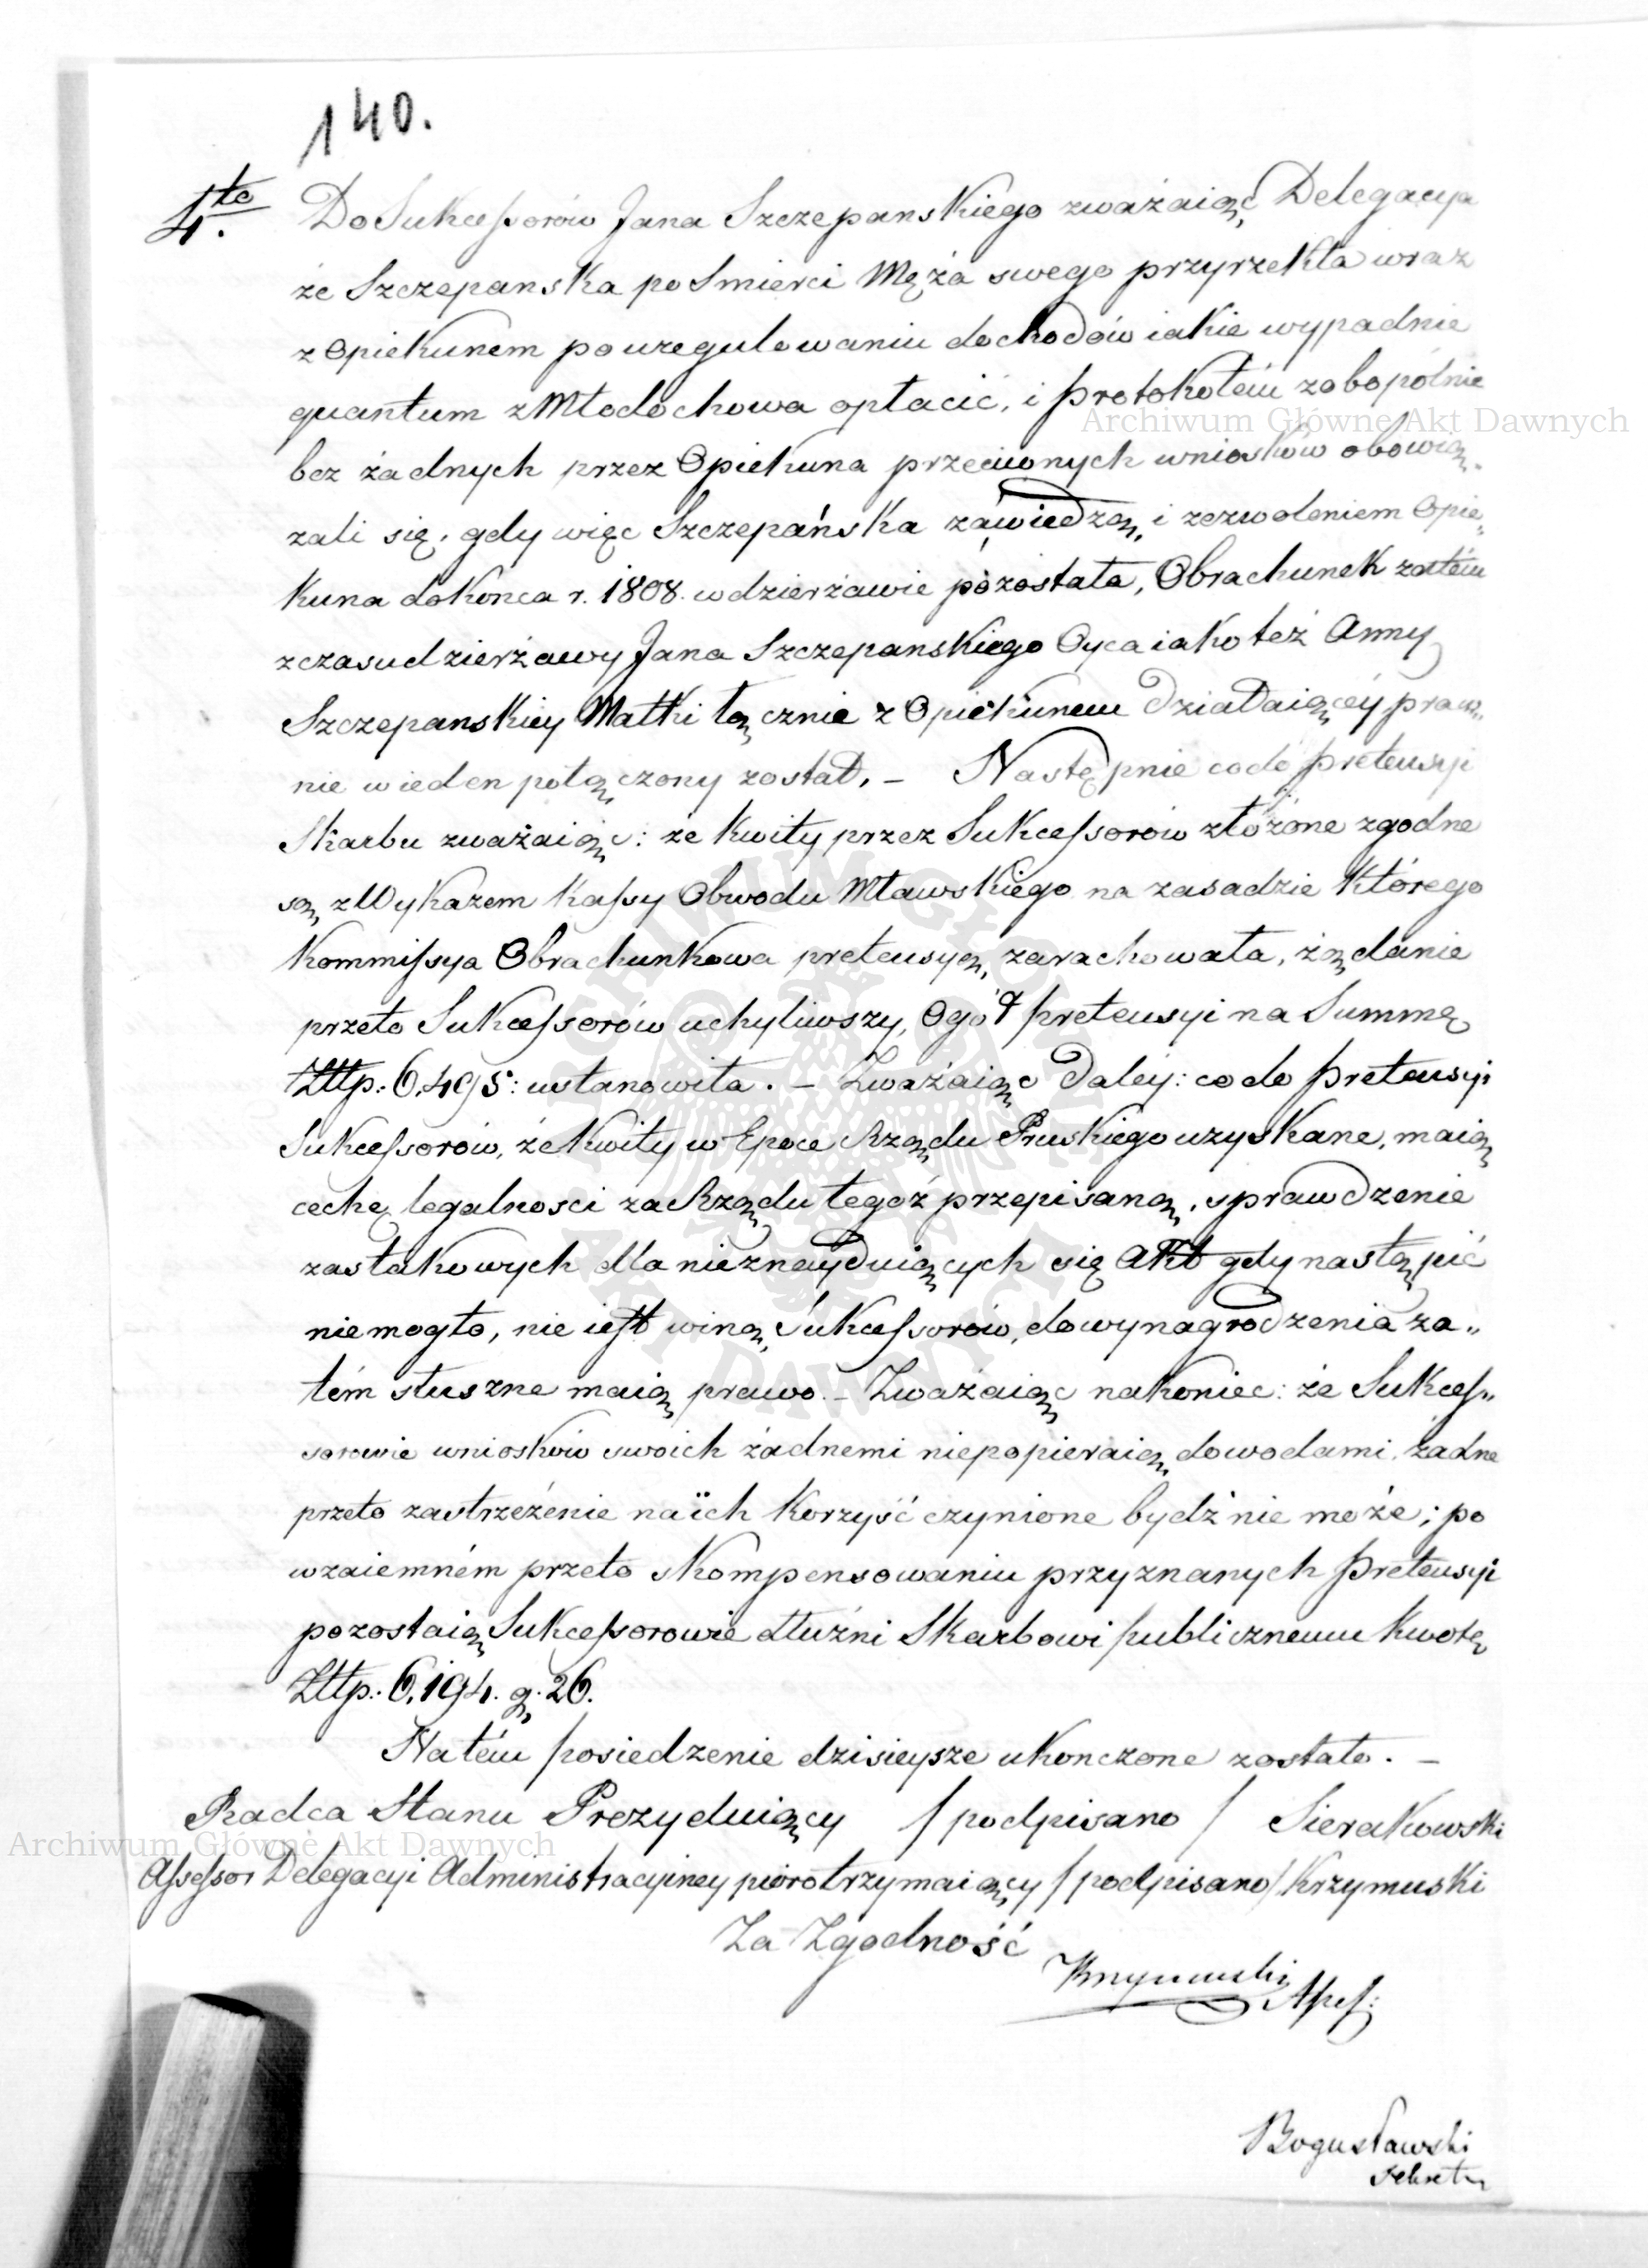 140.
4.to Do Sukcessorów Jana Szczepanskiego zważaiąc Delegacya
że Szczepanska po Smierci Męża swego przyrzekła wraz
z Opiekunem po uregulowaniu dochodów iakie wypadnie
quantum z Młodochowa opłacić, i protokołem zobopólnie
bez żadnych przez Opiekuna przeciwnych wniosków obowią„
zali się, gdy więc Szczepańska za wiedzą, i zezwoleniem Opie„
kuna do Konca r. 1808. w dzierżawie pozostała, Obrachunek zatém
z czasu dzierżawy Jana Szczepanskiego Oyca iako też Anny
Szczepanskiey Matki łącznie z Opiekunem działaiącéy praw„
nie w ieden połączony został. – Następnie co do pretensyi
Skarbu zważaiąc: że Kwity przez Sukcessorów złożone zgodne
są z Wykazem Kassy Obwodu Mławskiego na zasadzie Którego
Kommissya Obrachunkowa pretensyą, zarachowała, żądanie
przeto Sukcessorów uchyliwszy, Ogół pretensyi na Summę
Złtp: 6,495: ustanowiła. – Zważaiąc Daley: co do pretensyi
Sukcessorów, że Kwity w Epoce Rządu Pruskiego uzyskane, maią
cechę legalnosci za Rządu tegoż przepisaną, sprawdzenie
zas takowych dla nieznayduiących się Akt gdy nastąpić
niemogło, nie iest winą, Sukcessorów, do wynagrodzenia za„
tém słuszne maią prawo. – Zważaiąc nakoniec: że Sukces„
sorowie wniosków swoich żadnemi niepopieraią dowodami, żadne
przeto zastrzeżenie na ich Korzyść czynione bydź nie może; po
wzaiemném przeto skompensowaniu przyznanych pretensyi
pozostaią Sukcessorowie dłużni Skarbowi publicznemu Kwotę
Złtp: 6,194. g. 26.
Na tém posiedzenie dzisieysze ukonczone zostało. –
Radca Stanu Prezyduiący /podpisano/ Sierakowski
Assessor Delegacyi Administracyiney pióro trzymaiący /podpisano/ Krzymuski
Za Zgodność
Krzymuski Asses:
Bogusławski
Sekret
Archiwum Główne Akt Dawnych
Archiwum Główne Akt Dawnych
ARCHIWUM GŁÓWNE AKT DAWNYCH